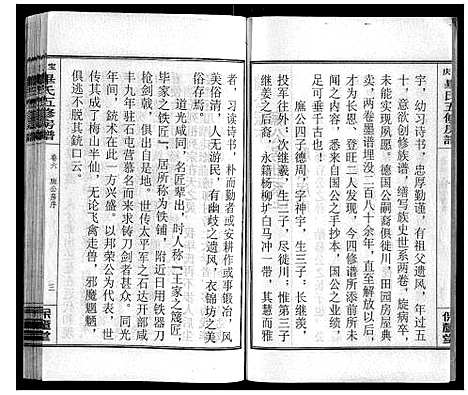 宇，幼习诗书，忠厚勤谨，有祖父遗风，年过五
十，意欲创修族谱，缮写族史世系两卷，旋病卒，
未能实现夙愿。德国公嗣裔俱徙川，田园房屋典
卖，两卷墨谱埋没二百八十余年，直至解放以后，
才为长恩、登旺二人发现，今四修谱所添前所未
闻之内容，悉来自国公之手抄本，国公之业绩，
可垂千古也！
廒公四子德周，字神宇，生三子：长继羡，
军职压任外：次继羲，生二子，尽徙川：惟第三子
继姜之后裔，永籍杨柳圹白马冲一带，其慧而雅
者，习读诗书，朴而勤者或安耕作或事锻冶，风
美俗清，人无游民，有幽歧之遗风，衣锦坊之美
俗存焉。
道光咸同，名匠辈出，时人称『王家之篾匠，
毕家之铁匠』，居所称为铁炉里，近日用铁器刀
枪剑戟，俱出自是地。世传太平军之石达开部咸
丰九年驻石屯营慕名而来求铸刀剑者甚众。同光
年间，铳术在此一方兴盛。以邦荣公为代表，世
传其成了梅山半仙，无论飞禽走兽，邪魔魍魉，
俱逃不脱其铳口云。
毕氏五修房谱
卷六
三
保厘堂